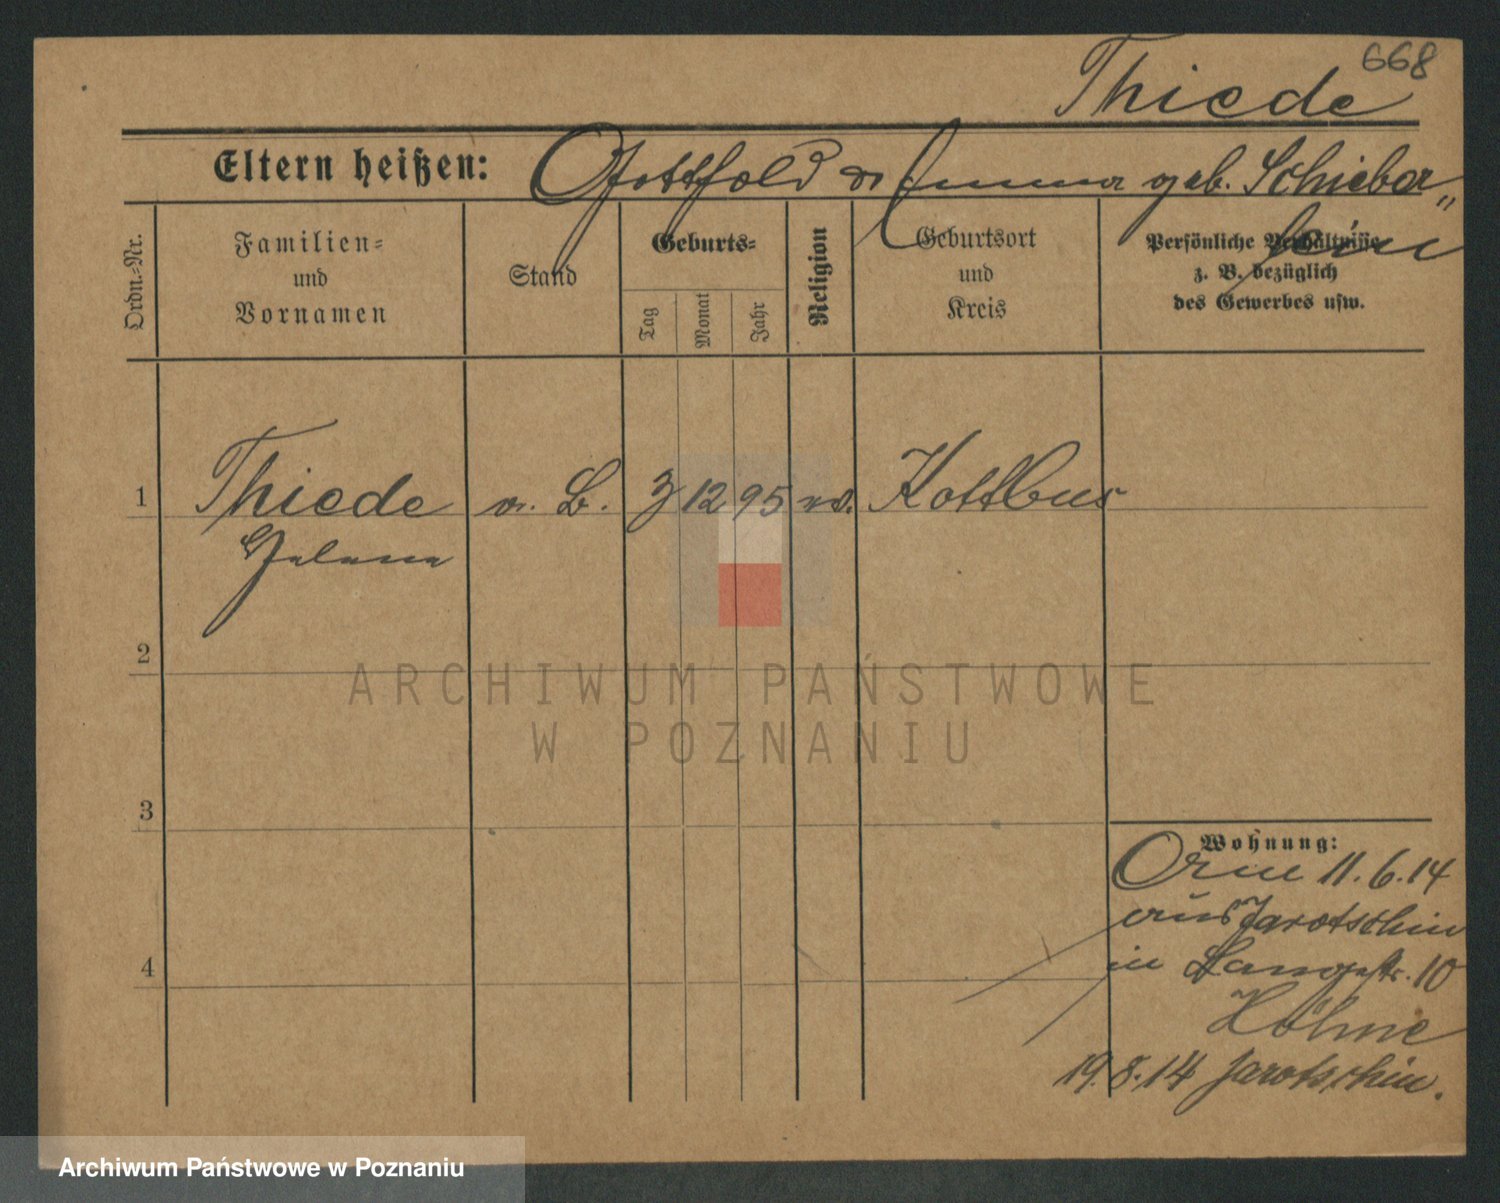 668
Thiede
Eltern heißen: Gottfold u Emma geb. Schiebar„
kin
Ordn.=Nr.
Familien=
und
Vornamen
Stand
Geburts=
Tag
Monat
Jahr
Religion
Geburtsort
und
Kreis
Persönliche Verhältnisse
z. B. bezüglich
des Gewerbes usw.
1 Thiede o. B. 3 12 95 ev. Kottbus
Helene
2
3
4
Wohnung:
11.6.14
aus Jarotschin
in Langestr. 10
Höhne
19.8.14 Jarotschin.
ARCHIWUM PAŃSTWOWE
W POZNANIU
Archiwum Państwowe w Poznaniu